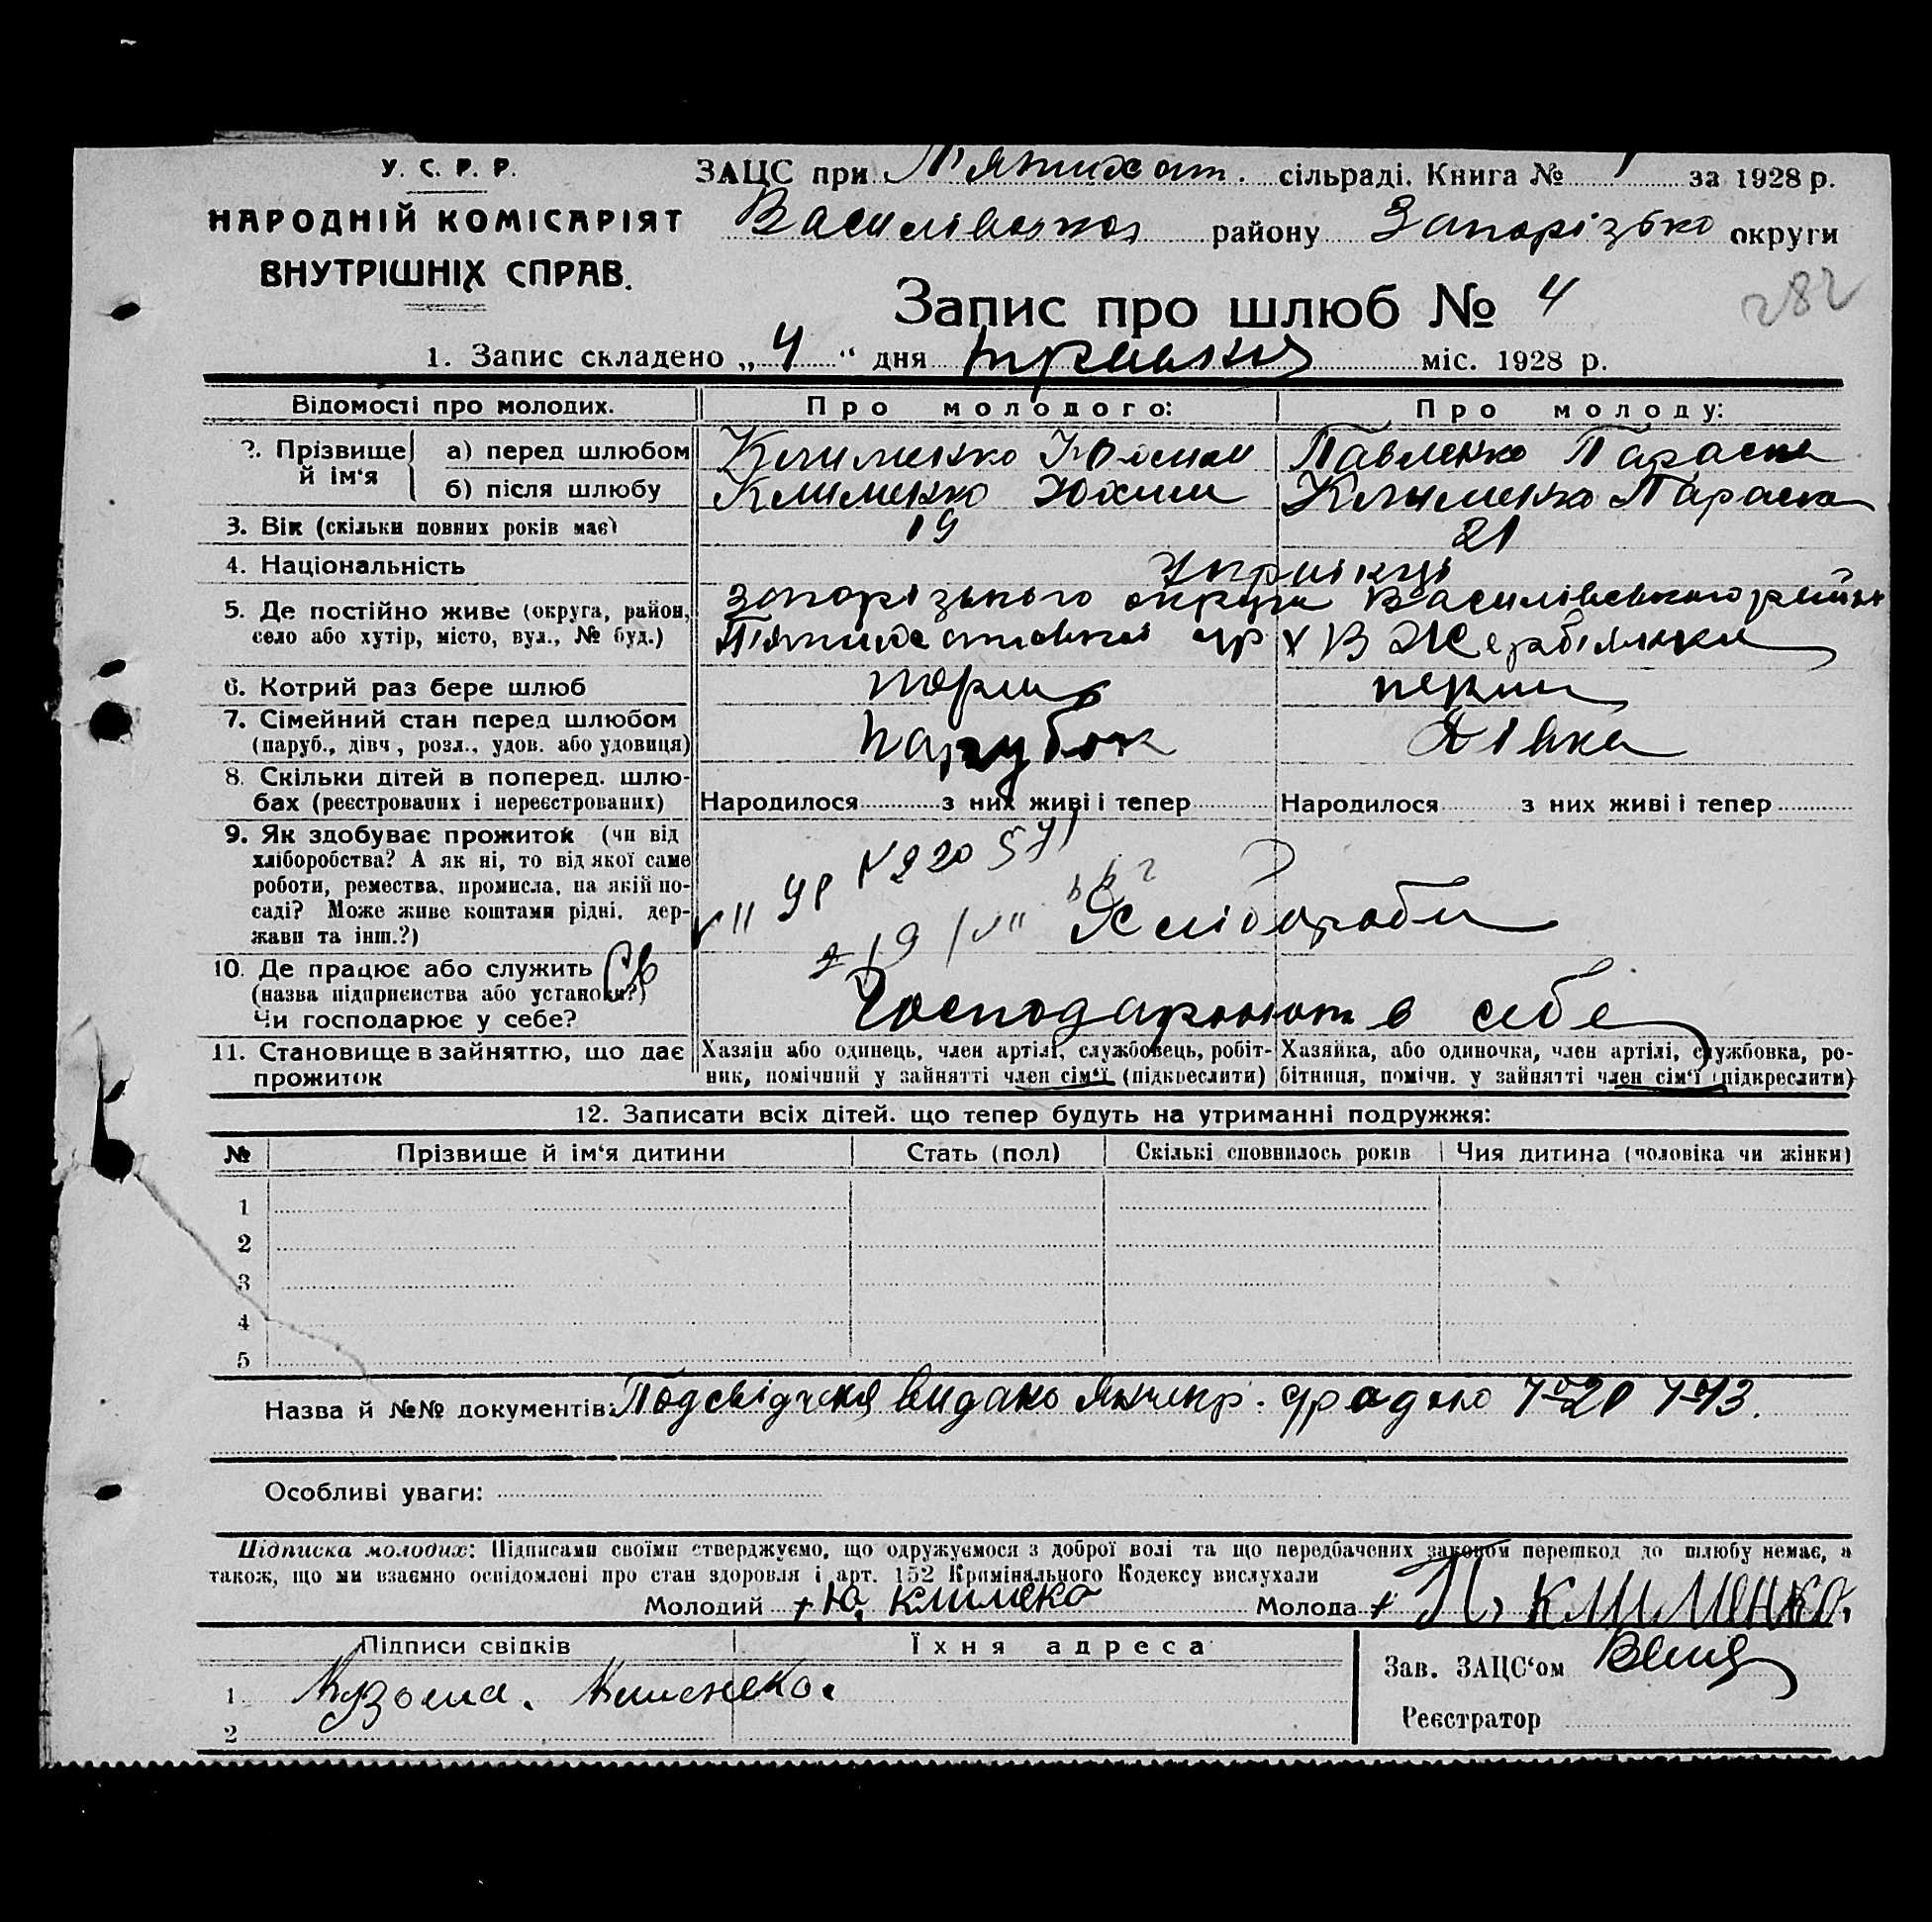 У. С. Р. Р.
НАРОДНІЙ КОМІСАРІЯТ
ВНУТРІШНІХ СПРАВ.
ЗАЦС при П'ятихат. сільраді. Книга № 1 за 1928 р.
Василівського району Запорізько округи
282
Запис про шлюб № 4
1. Запис складено „ 4 " дня травня міс. 1928 р.
Відомості про молодих. Про молодого: Про молоду:
2. Прізвище й ім'я
а) перед шлюбом Клименко Юхим Павленко Параска
б) після шлюбу Клименко Юхим Клименко Параска
3. Вік (скільки повних років має) 19 21
4. Національність Українці
5. Де постійно живе (округа, район, Запорізького округи Василівського район
село або хутір, місто, вул., № буд.) П'ятихатської с/р х В Жереб'янки
6. Котрий раз бере шлюб перши перши
7. Сімейний стан перед шлюбом парубок дівка
(паруб., дівч., розл., удов. або удовиця)
8. Скільки дітей в поперед. шлю-
бах (реєстрованих і нереєстрованих) Народилося з них живі і тепер Народилося з них живі і тепер
9. Як здобуває прожиток (чи від
хліборобства? А як ні, то від якої саме
роботи, ремества, промисла, на якій по-
саді? Може живе коштами рідні, дер-
жави та інш.?)
Хлібороби
10. Де працює або служить
(назва підприємства або установи?)
Чи господарює у себе? Господарюють в себе
11. Становище в зайняттю, що дає Хазяїн або одинець, член артілі, службовець, робіт- Хазяйка, або одиночка, член артілі, службовка, ро-
прожиток ник, помічний у зайнятті член сім'ї (підкреслити) бітниця, помічн. у зайнятті член сім'ї (підкреслити)
12. Записати всіх дітей. що тепер будуть на утриманні подружжя:
№ Прізвище й ім'я дитини Стать (пол) Скількі сповнилось років Чия дитина (чоловіка чи жінки)
1
2
3
4
5
Назва й №№ документів: Подсвідченя видано
Особливі уваги:
Підписка молодих: Підписами своїми стверджуємо, що одружуємося з доброї волі та що передбачених законом перешкод до шлюбу немає, а
також, що ми взаємно освідомлені про стан здоровля і арт. 152 Кримінального Кодексу вислухали
Молодий + Ю. Клименко Молода + П. Клименко.
Підписи свідків Їхня адреса
1. Кузьма. Клименеко.
2
Зав. ЗАЦС'ом
Реєстратор